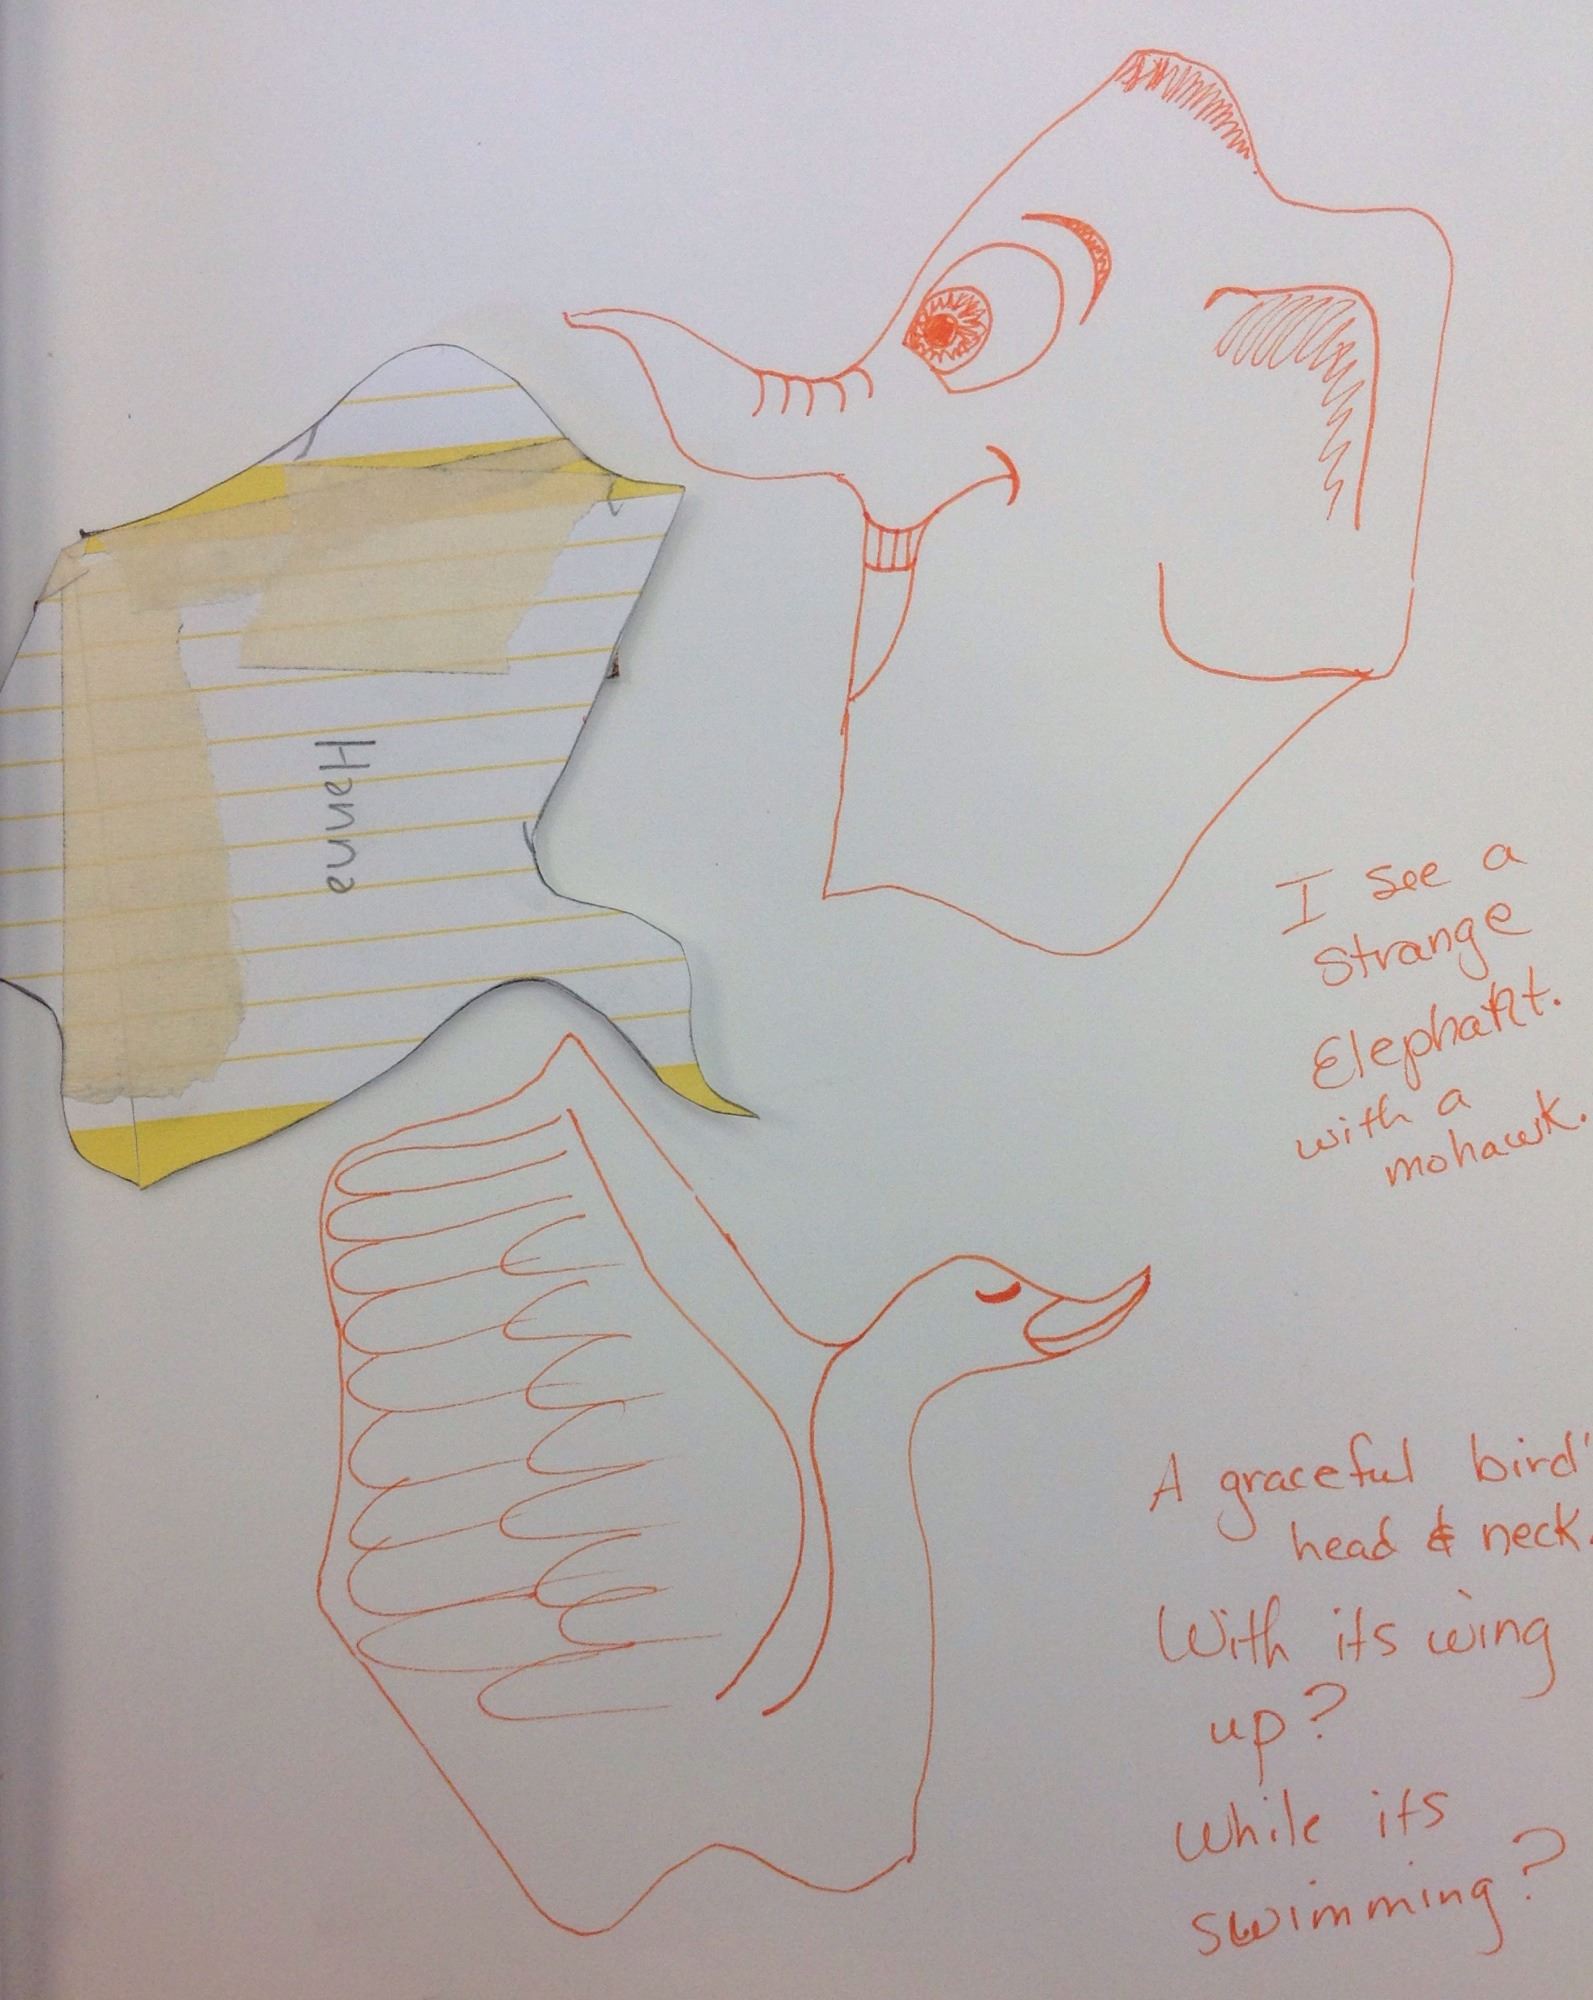 Hanna
I see a
Strange
Elephant.
with a
mohawk.
A graceful bird's
head & neck.
With its wing
up?
While its
swimming?